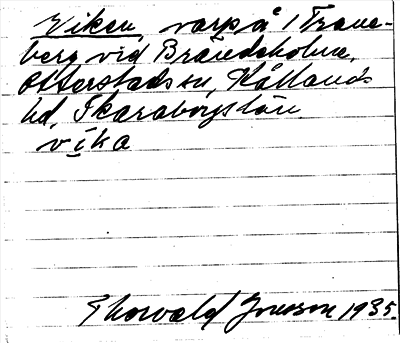 Viken, varp å 1 Trane-
berg vid Brandsholm,
Otterstads sn, Kållands
hd, Skaraborgs län.
vika
Thorvald Jonsson 1935.